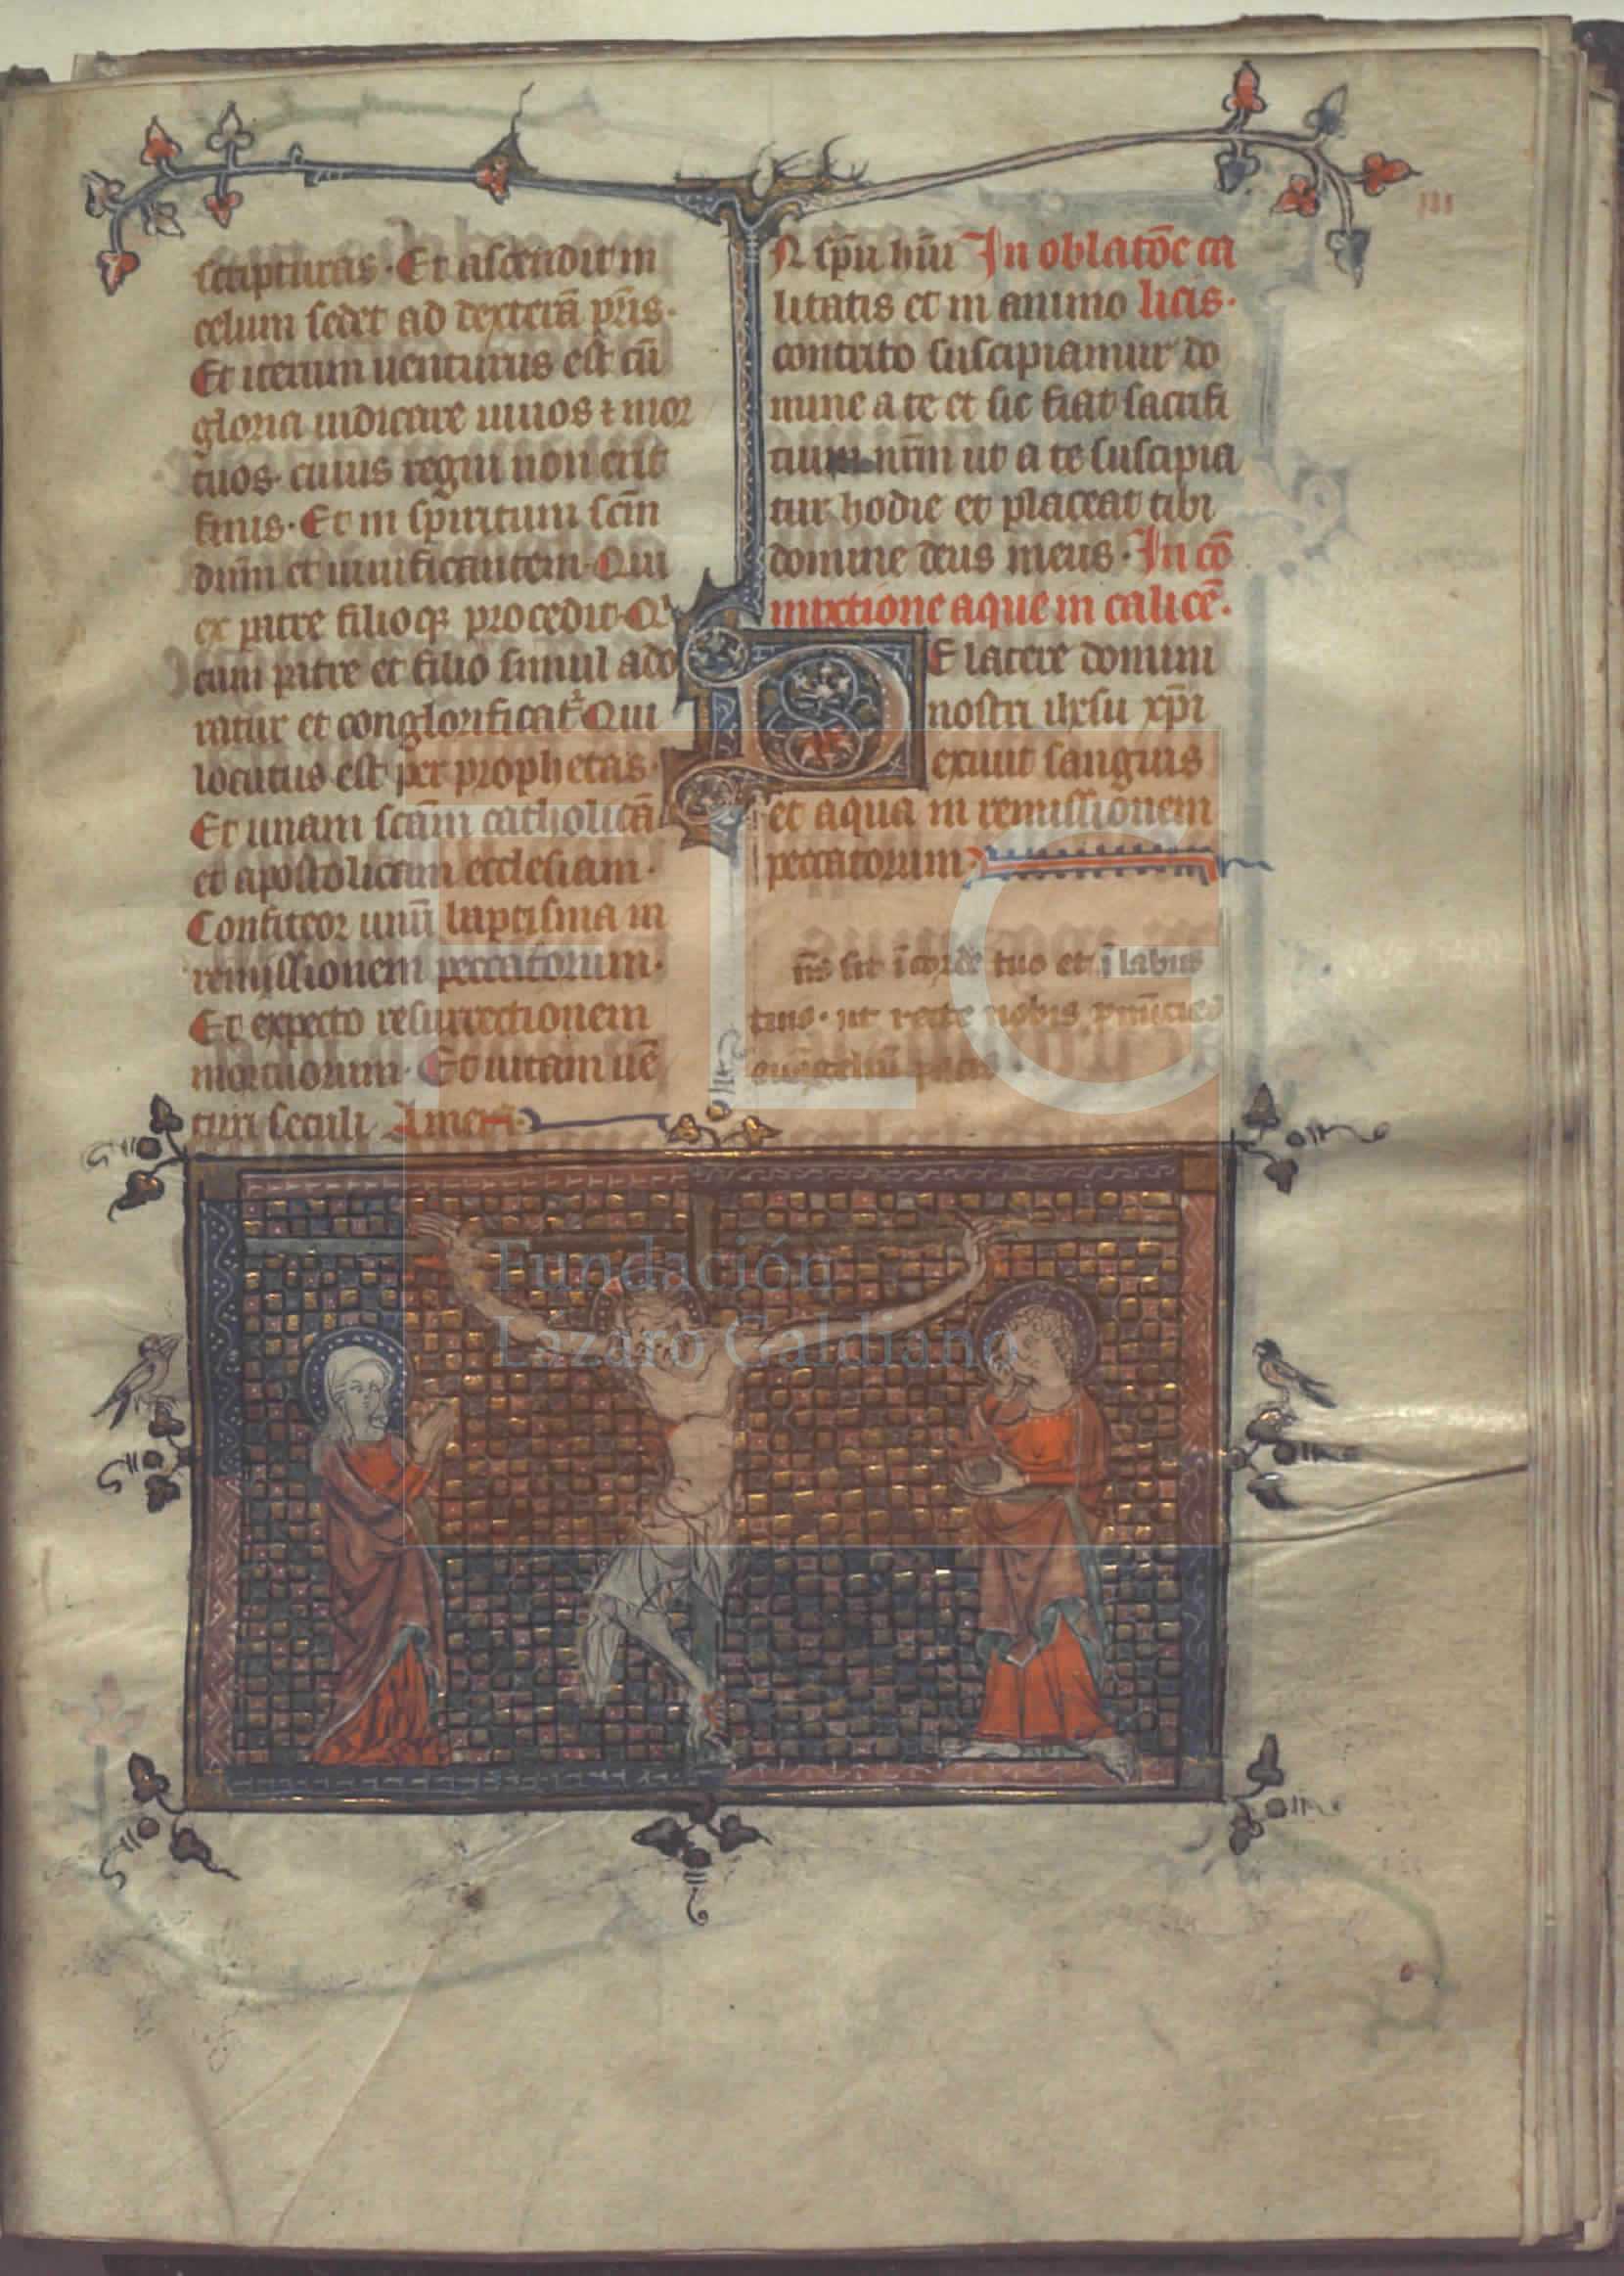 scripturas. Et ascendit in
celum sedet ad dexterā pr̄is.
Et iterum uenturus est cū
gloria iudicare uiuos ⁊ mor
tuos. cuius regni non erit
finis. Et in spiritum scm̄
dn̄m et uiuificantem. Qui
ex patre filioqꝫ procedit. Q
cum patre et filio simul ado
ratur et conglorificat᷑. Qui
locutus est per prophetas.
Et unam scām catholicā
et apostolicam ecclesiam.
Confiteor unū baptisma in
remissionem peccatorum.
Et expecto resurrectionem
mortuorum. Et uitam uē
turi seculi. Amen.
N sp̄u hūi In oblatōe ca
litatis et in animo licis.
contrito suscipiamur do
mine a te et sic fiat sacrifi
cium nr̄m ut a te suscipia
tur hodie et placeat tibi
domine deus meus. In cō
mixtione aque in calicē.
DE latere domini
nostri ihesu xp̄i
exiuit sanguis
et aqua in remissionem
peccatorum.
n̄s sit ī corde tuo et ī labiis
tuis. ut recte nobis
euāgeliū pacis.
FLG
Fundación
Lázaro Galdiano